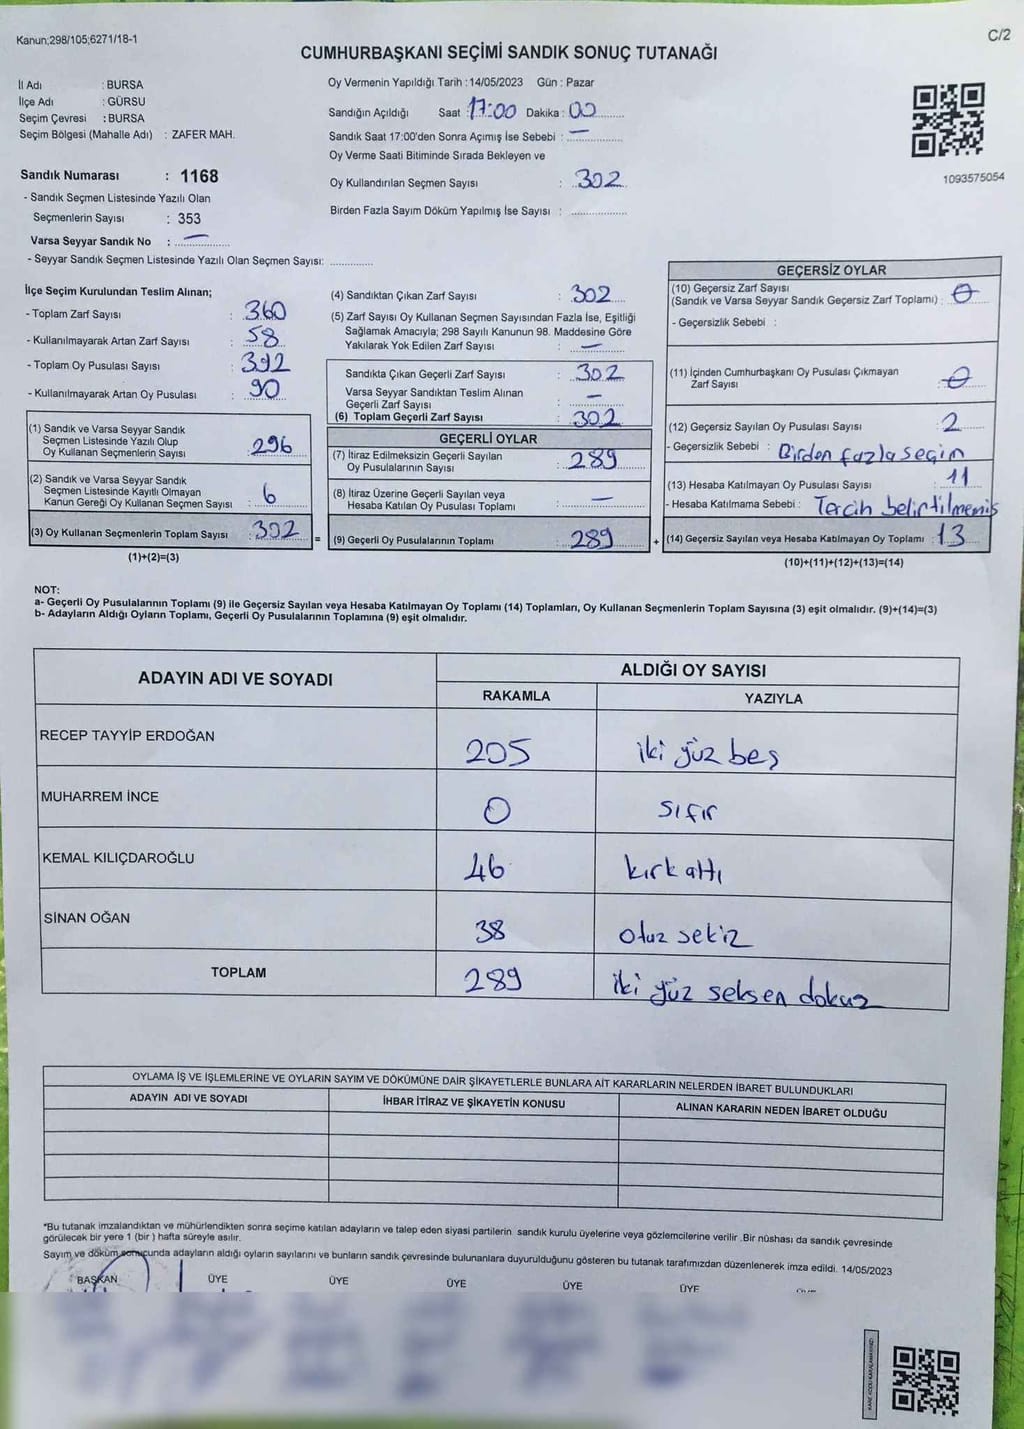 Kanun;298/105;6271/18-1
C/2
CUMHURBAŞKANI SEÇİMİ SANDIK SONUÇ TUTANAĞI
İl Adı : BURSA
İlçe Adı : GÜRSU
Seçim Çevresi : BURSA
Seçim Bölgesi (Mahalle Adı) : ZAFER MAH.
Sandık Numarası : 1168
- Sandık Seçmen Listesinde Yazılı Olan
Seçmenlerin Sayısı : 353
Varsa Seyyar Sandık No : —
- Seyyar Sandık Seçmen Listesinde Yazılı Olan Seçmen Sayısı:
Oy Vermenin Yapıldığı Tarih : 14/05/2023 Gün : Pazar
Sandığın Açıldığı Saat : 17:00 Dakika : 00
Sandık Saat 17:00'den Sonra Açımış İse Sebebi : —
Oy Verme Saati Bitiminde Sırada Bekleyen ve
Oy Kullandırılan Seçmen Sayısı : 302
Birden Fazla Sayım Döküm Yapılmış İse Sayısı :
1093575054
İlçe Seçim Kurulundan Teslim Alınan;
- Toplam Zarf Sayısı : 360
- Kullanılmayarak Artan Zarf Sayısı : 58
- Toplam Oy Pusulası Sayısı : 392
- Kullanılmayarak Artan Oy Pusulası : 90
(1) Sandık ve Varsa Seyyar Sandık
Seçmen Listesinde Yazılı Olup
Oy Kullanan Seçmenlerin Sayısı : 296
(2) Sandık ve Varsa Seyyar Sandık
Seçmen Listesinde Kayıtlı Olmayan
Kanun Gereği Oy Kullanan Seçmen Sayısı : 6
(3) Oy Kullanan Seçmenlerin Toplam Sayısı : 302 =
(1)+(2)=(3)
(4) Sandıktan Çıkan Zarf Sayısı : 302
(5) Zarf Sayısı Oy Kullanan Seçmen Sayısından Fazla İse, Eşitliği
Sağlamak Amacıyla; 298 Sayılı Kanunun 98. Maddesine Göre
Yakılarak Yok Edilen Zarf Sayısı : —
Sandıkta Çıkan Geçerli Zarf Sayısı : 302
Varsa Seyyar Sandıktan Teslim Alınan
Geçerli Zarf Sayısı : —
(6) Toplam Geçerli Zarf Sayısı : 302
GEÇERLİ OYLAR
(7) İtiraz Edilmeksizin Geçerli Sayılan
Oy Pusulalarının Sayısı : 289
(8) İtiraz Üzerine Geçerli Sayılan veya
Hesaba Katılan Oy Pusulası Toplamı : —
(9) Geçerli Oy Pusulalarının Toplamı : 289 +
GEÇERSİZ OYLAR
(10) Geçersiz Zarf Sayısı
(Sandık ve Varsa Seyyar Sandık Geçersiz Zarf Toplamı) : 0
- Geçersizlik Sebebi :
(11) İçinden Cumhurbaşkanı Oy Pusulası Çıkmayan
Zarf Sayısı : 0
(12) Geçersiz Sayılan Oy Pusulası Sayısı : 2
- Geçersizlik Sebebi : Birden fazla seçim
(13) Hesaba Katılmayan Oy Pusulası Sayısı : 11
- Hesaba Katılmama Sebebi : Tercih belirtilmemiş
(14) Geçersiz Sayılan veya Hesaba Katılmayan Oy Toplamı : 13
(10)+(11)+(12)+(13)=(14)
NOT:
a- Geçerli Oy Pusulalarının Toplamı (9) ile Geçersiz Sayılan veya Hesaba Katılmayan Oy Toplamı (14) Toplamları, Oy Kullanan Seçmenlerin Toplam Sayısına (3) eşit olmalıdır. (9)+(14)=(3)
b- Adayların Aldığı Oyların Toplamı, Geçerli Oy Pusulalarının Toplamına (9) eşit olmalıdır.
ADAYIN ADI VE SOYADI
ALDIĞI OY SAYISI
RAKAMLA YAZIYLA
RECEP TAYYİP ERDOĞAN 205 iki yüz beş
MUHARREM İNCE 0 sıfır
KEMAL KILIÇDAROĞLU 46 kırk altı
SİNAN OĞAN 38 otuz sekiz
TOPLAM 289 iki yüz seksen dokuz
OYLAMA İŞ VE İŞLEMLERİNE VE OYLARIN SAYIM VE DÖKÜMÜNE DAİR ŞİKAYETLERLE BUNLARA AİT KARARLARIN NELERDEN İBARET BULUNDUKLARI
ADAYIN ADI VE SOYADI İHBAR İTİRAZ VE ŞİKAYETİN KONUSU ALINAN KARARIN NEDEN İBARET OLDUĞU
*Bu tutanak imzalandıktan ve mühürlendikten sonra seçime katılan adayların ve talep eden siyasi partilerin sandık kurulu üyelerine veya gözlemcilerine verilir .Bir nüshası da sandık çevresinde
görülecek bir yere 1 (bir ) hafta süreyle asılır.
Sayım ve döküm sonucunda adayların aldığı oyların sayılarını ve bunların sandık çevresinde bulunanlara duyurulduğunu gösteren bu tutanak tarafımızdan düzenlenerek imza edildi. 14/05/2023
BAŞKAN ÜYE ÜYE ÜYE ÜYE ÜYE